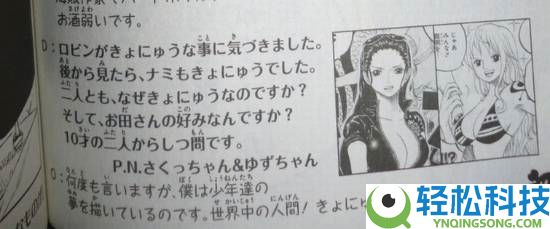 お酒弱いです。
D：ロビンがきょにゅうな事に気づきました。
後から見たら、ナミもきょにゅうでした。
二人とも、なぜきょにゅうなのですか？
そして、お田さんの好みなんですか？
10才の二人からしつ問です。
P.N.さくっちゃん&ゆずちゃん
O：何度も言いますが、僕は少年達の
夢を描いているのです。世界中の人間！きょにゅ
じゃあ
みんな
!!?
轻松科技
YNQINGSONG.COM